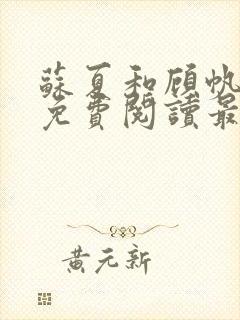 蘇夏和顧帆
免費閱讀最
黃元新